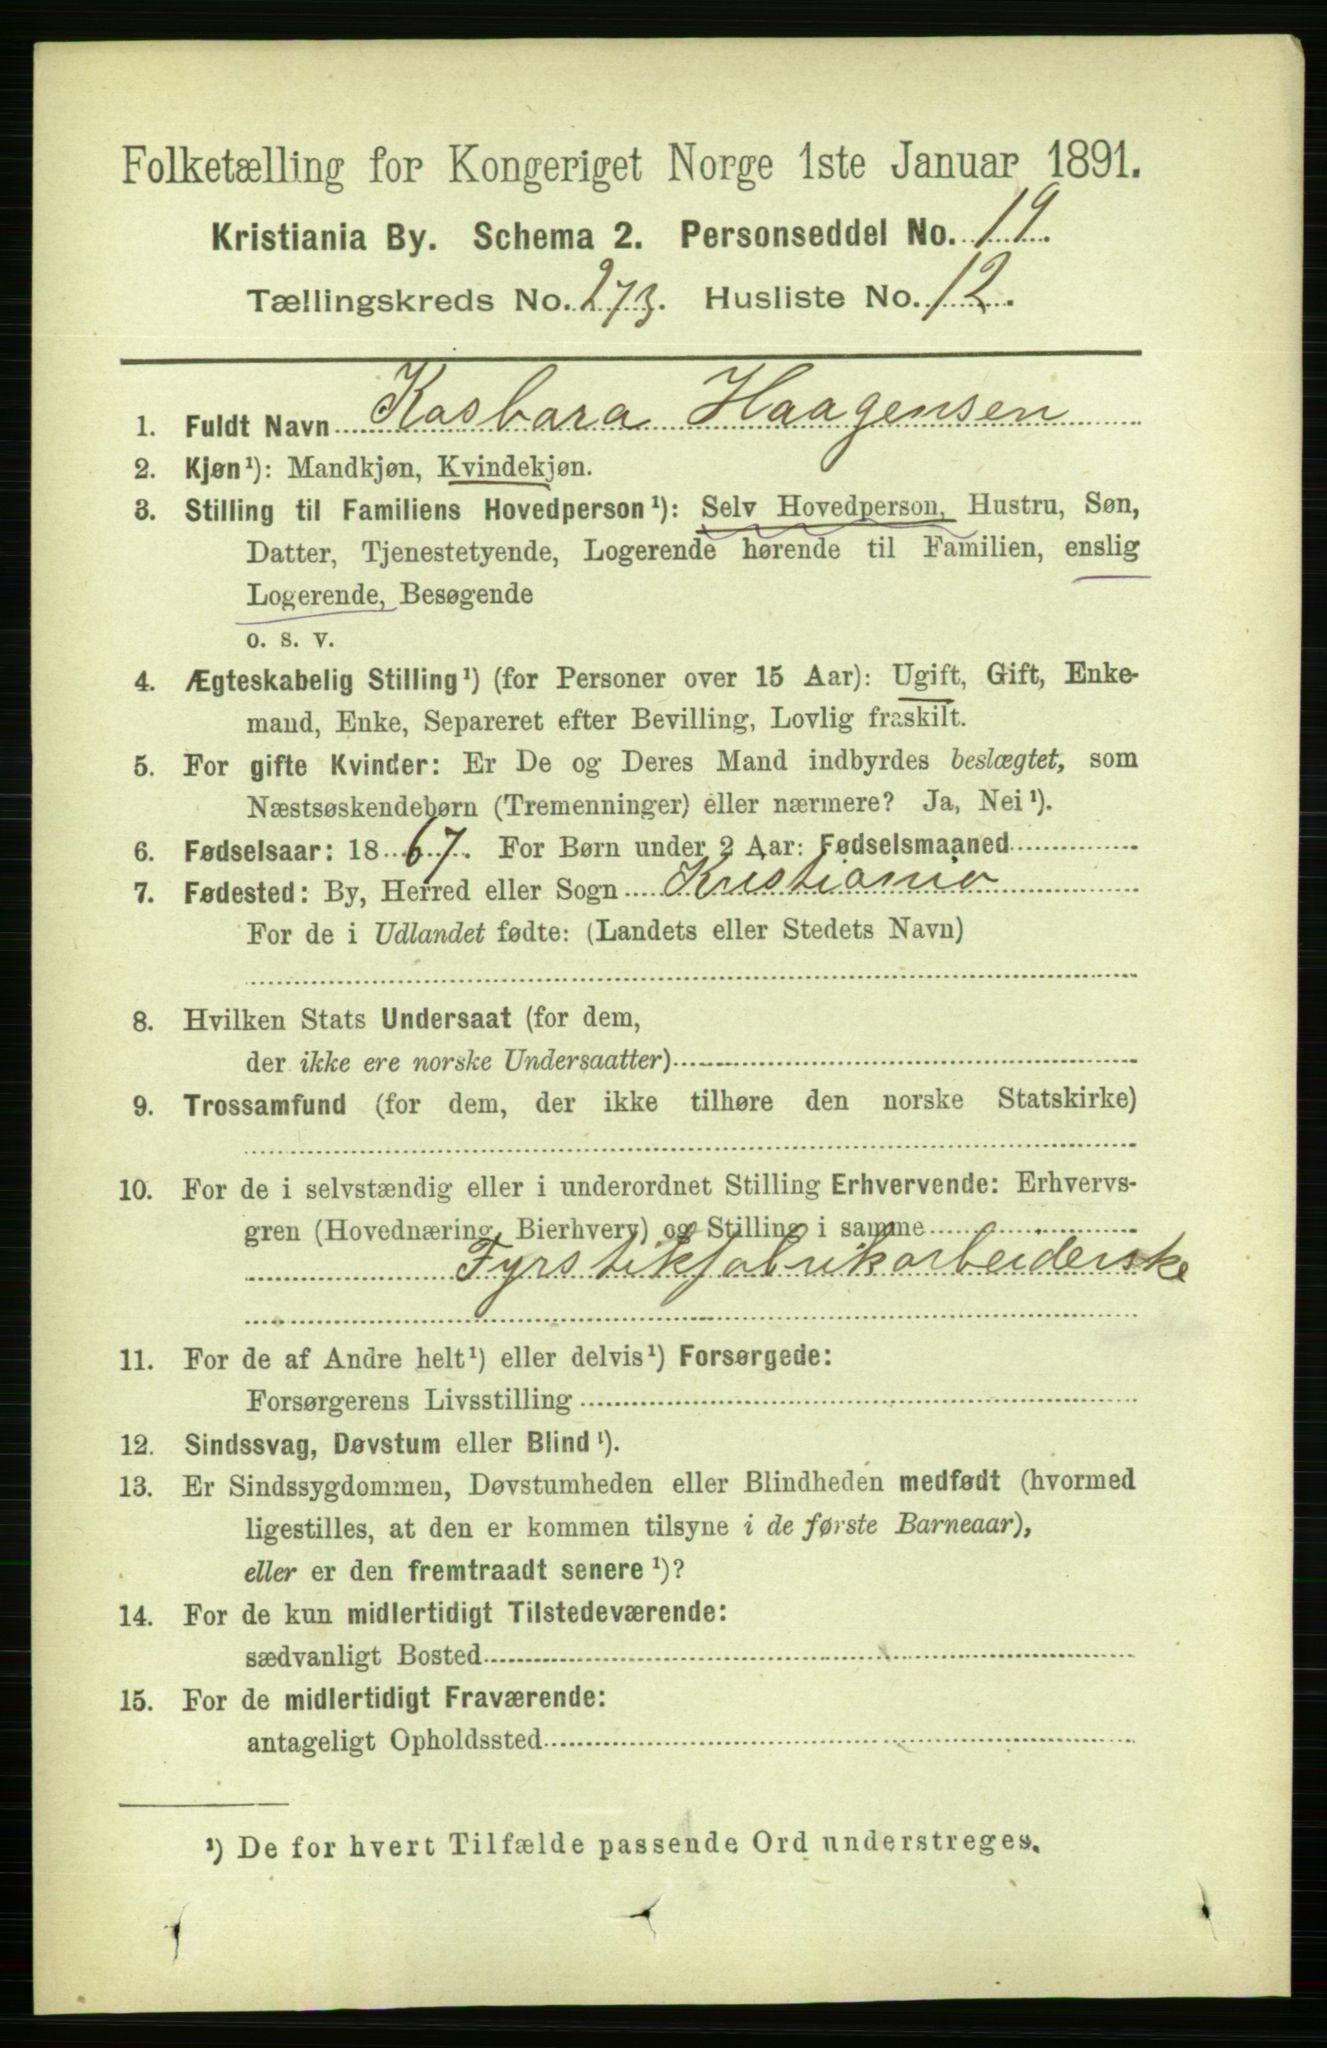 Folketælling for Kongeriget Norge 1ste Januar 1891.
Kristiania By. Schema 2. Personseddel No. 19.
Tællingskreds No. 273. Husliste No. 12.
1. Fuldt Navn Kasbara Haagensen
2. Kjøn¹): Mandkjøn, Kvindekjøn.
3. Stilling til Familiens Hovedperson¹): Selv Hovedperson, Hustru, Søn,
Datter, Tjenestetyende, Logerende hørende til Familien, enslig
Logerende, Besøgende
o. s. v.
4. Ægteskabelig Stilling¹) (for Personer over 15 Aar): Ugift, Gift, Enke-
mand, Enke, Separeret efter Bevilling, Lovlig fraskilt.
5. For gifte Kvinder: Er De og Deres Mand indbyrdes beslægtet, som
Næstsøskendebørn (Tremenninger) eller nærmere? Ja, Nei¹).
6. Fødselsaar: 1867. For Børn under 2 Aar: Fødselsmaaned
7. Fødested: By, Herred eller Sogn Kristiania
For de i Udlandet fødte: (Landets eller Stedets Navn)
8. Hvilken Stats Undersaat (for dem,
der ikke ere norske Undersaatter)
9. Trossamfund (for dem, der ikke tilhøre den norske Statskirke)
10. For de i selvstændig eller i underordnet Stilling Erhvervende: Erhvervs-
gren (Hovednæring, Bierhverv) og Stilling i samme
Fyrstikfabrikarbeiderske
11. For de af Andre helt¹) eller delvis¹) Forsørgede:
Forsørgerens Livsstilling
12. Sindssvag, Døvstum eller Blind¹).
13. Er Sindssygdommen, Døvstumheden eller Blindheden medfødt (hvormed
ligestilles, at den er kommen tilsyne i de første Barneaar),
eller er den fremtraadt senere¹)?
14. For de kun midlertidigt Tilstedeværende:
sædvanligt Bosted
15. For de midlertidigt Fraværende:
antageligt Opholdssted
¹) De for hvert Tilfælde passende Ord understreges.